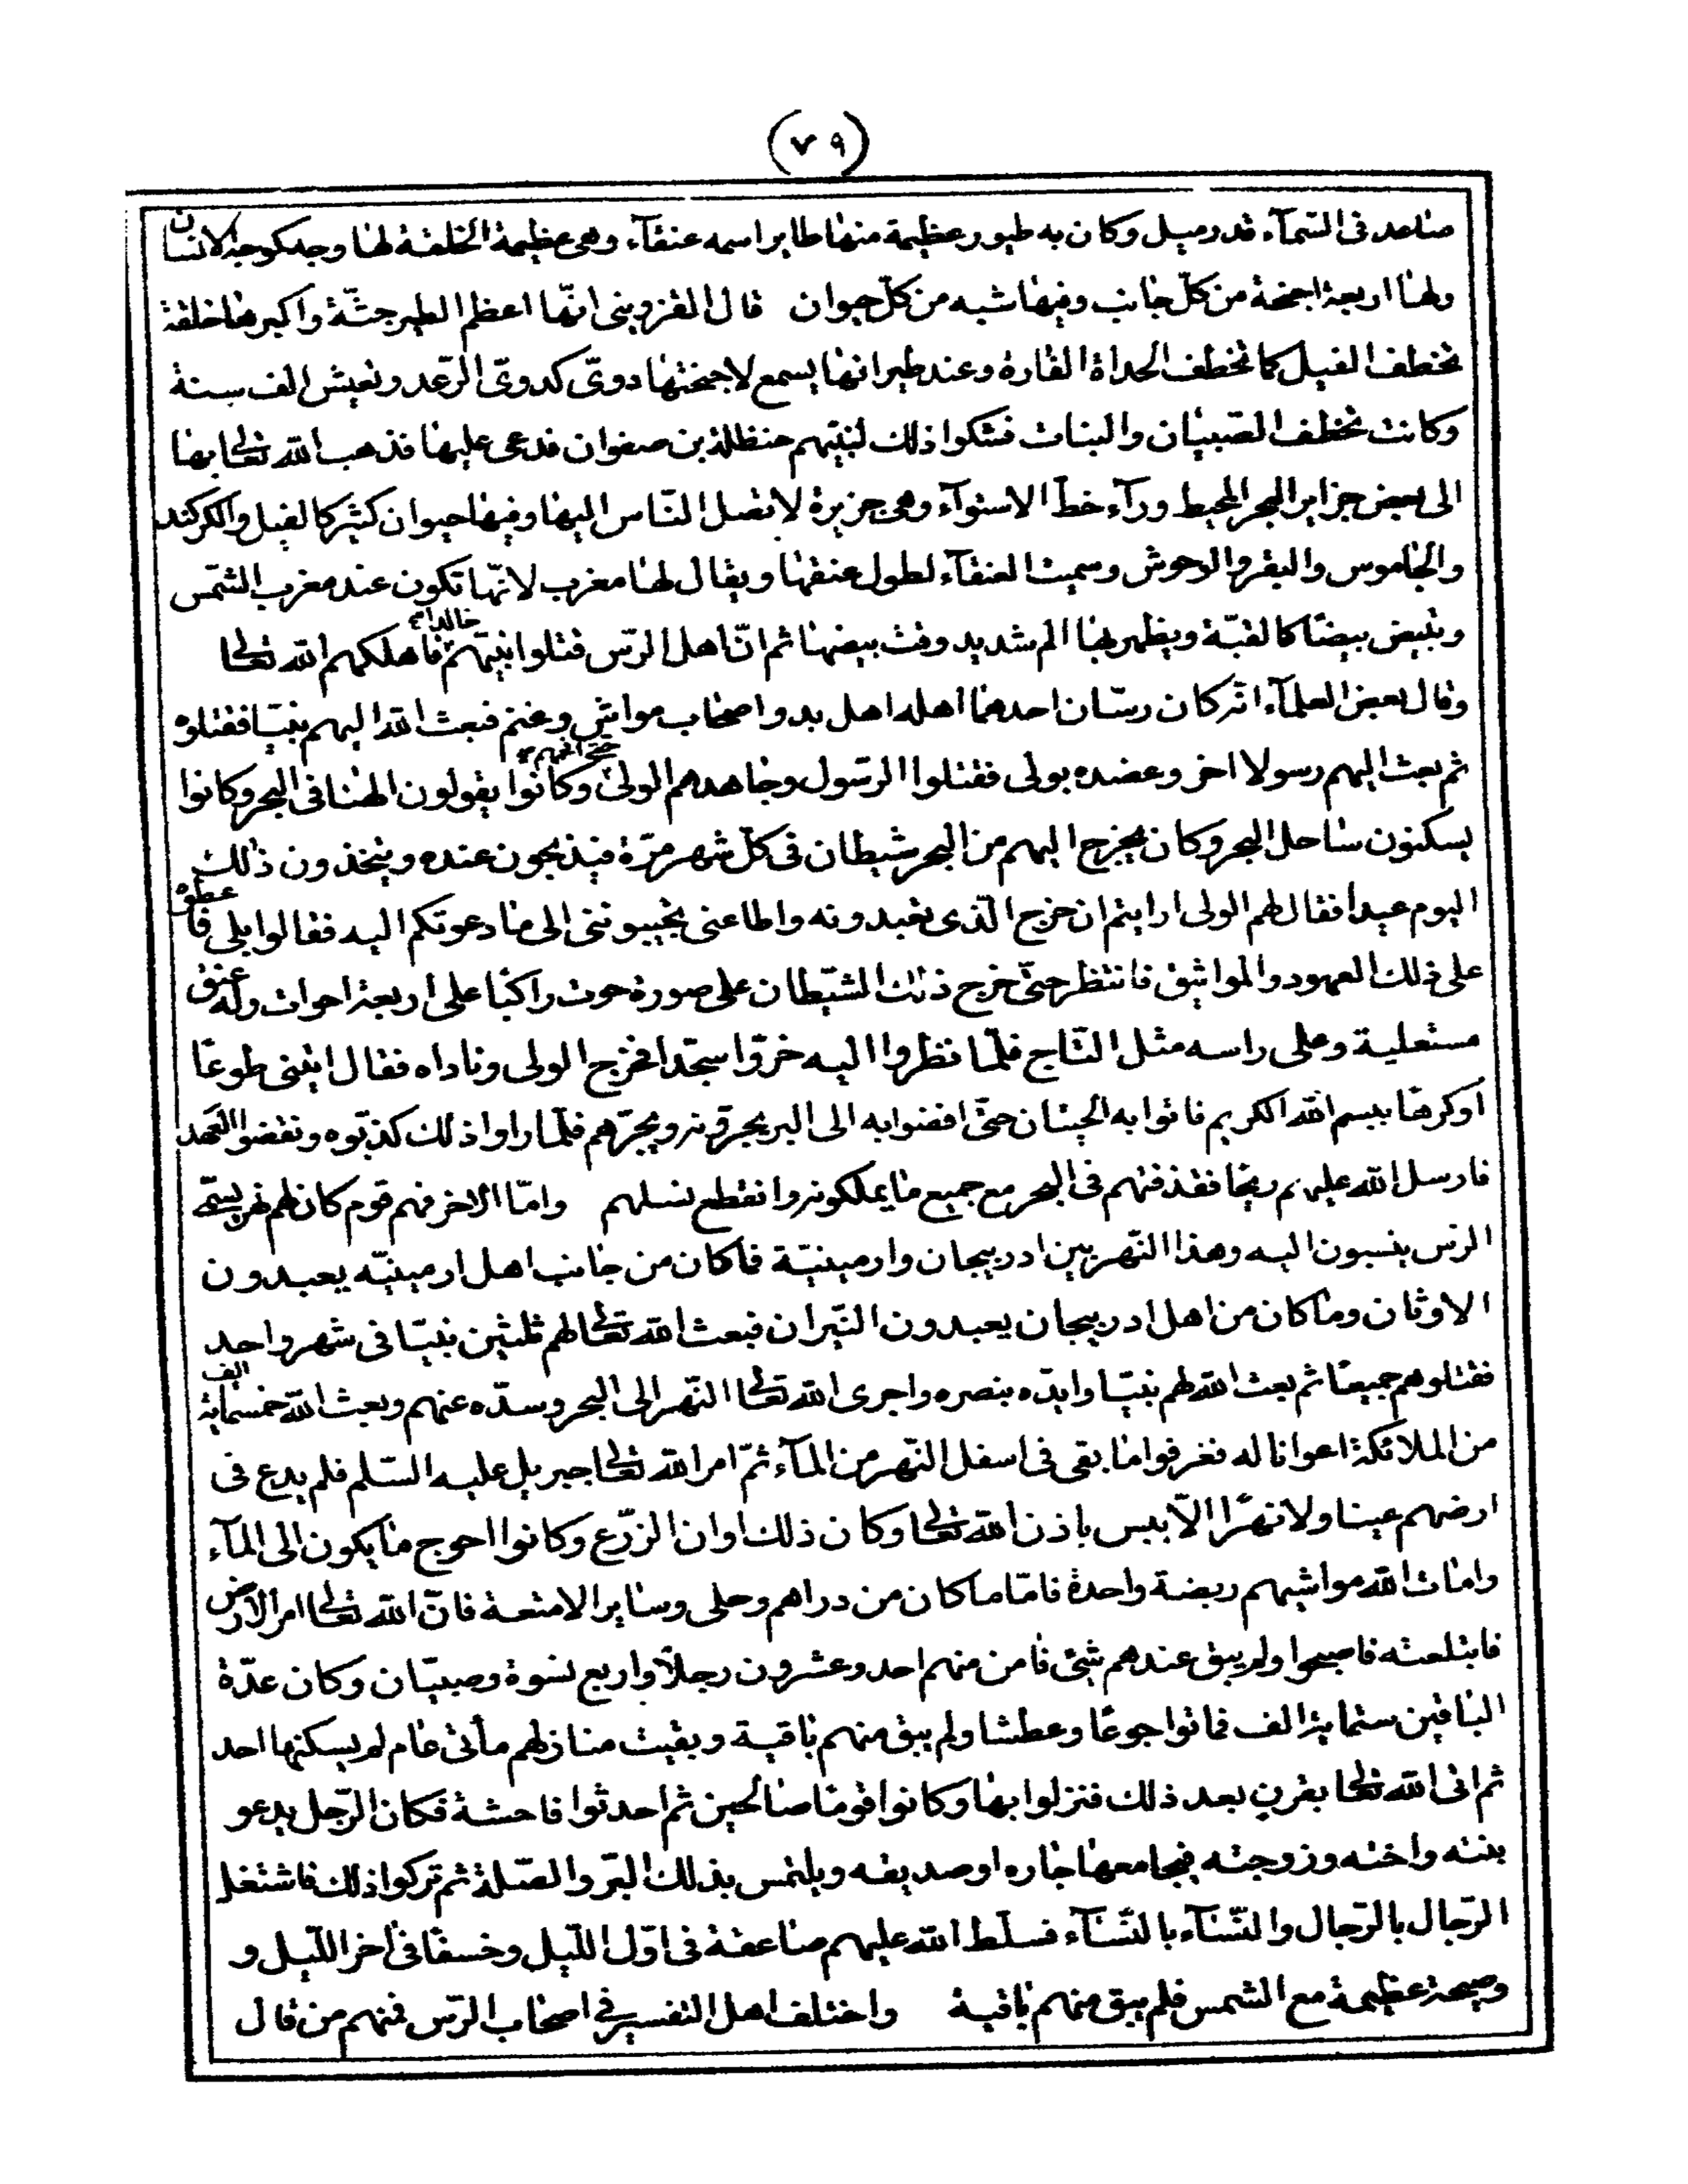 (٧٩)
صاعد فى السّمآء قدر ميل وكان به طيور عظيمة منها طاير اسمه عنقآء وهى عظيمة الخلقة لها وجه كوجه الانسان
ولها اربعة اجنحة من كلّ جانب وفيها شبه من كلّ حيوان قال القزوينى انّها اعظم الطير جثّة واكبرها خلقة
تخطف الفيل كما تخطف الحداة الفارة وعند طيرانها يسمع لاجنحتها دوىّ كدوىّ الرّعد وتعيش الف سنة
وكانت تخطف الصّبيان والبنات فشكوا ذلك لنبيّهم حنظلة بن صفوان فدعى عليها فذهب الله تعالى بها
الى بعض جزاير البحر المحيط ورآء خطّ الاستوآء وهى جزيرة لا تصل النّاس اليها وفيها حيوان كثير كالفيل والكركند
والجاموس والبقر والوحوش وسميت العنقآء لطول عنقها ويقال لها مغرب لانّها تكون عند مغرب الشّمس
وتبيض بيضا كالقبّة ويظهر لها الم شديد وقت بيضها ثم انّ اهل الرّس قتلوا نبيّهم خالدا فاهلكهم الله تعالى
وقال بعض العلمآء انّه كان رسّان احدهما اهله اهل بدو واصحاب مواشى وغنم فبعث الله اليهم نبيّا فقتلوه
ثم بعث اليهم رسولا اخر وعضده بولى فقتلوا الرّسول وجاهدهم الولىّ حتى افحمهم وكانوا يقولون الهنا فى البحر وكانوا
يسكنون ساحل البحر وكان يخرج اليهم من البحر شيطان فى كلّ شهر مرّة فيذبحون عنده ويتخذون ذلك
اليوم عيدا فقال لهم الولى ارايتم ان خرج الّذى تعبدونه واطاعنى تجيبوننى الى ما دعوتكم اليه فقالوا بلى فاعطوه
على ذلك العهود والمواثيق فانتظر حتّى خرج ذلك الشّيطان على صورة حوت راكبا على اربعة احوات وله عنق
مستعلية وعلى راسه مثل التّاج فلمّا نظروا اليه خرّوا سجّدا فخرج الولى وناداه فقال ايتنى طوعا
او كرها ببسم الله الكريم فاتوا به الحيتان حتّى افضوا به الى البر يجرّونه ويجرّهم فلمّا راوا ذلك كذبّوه ونقضوا العهد
فارسل الله عليهم ريحا فقذفتهم فى البحر مع جميع ما يملكونه وانقطع نسلهم وامّا الاخر فهم قوم كان لهم نهر يسمّى
الرّس ينسبون اليه وهذا النّهر بين ادربيجان وارمينيّة فاكان من جانب اهل ارمينيّه يعبدون
الاوثان وما كان من اهل ادربيجان يعبدون النّيران فبعث الله تعالى لهم ثلثين نبيّا فى شهر واحد
فقتلوهم جميعا ثم بعث الله لهم نبيّا وايدّه بنصره واجرى الله تعالى النّهر الى البحر وسدّه عنهم وبعث الله خمسماية الف
من الملائكة اعوانا له فغرفوا ما بقى فى اسفل النّهر من المآء ثمّ امر الله تعالى جبريل عليه السّلم فلم يدع فى
ارضهم عينا ولا نهرا الاّ يبس باذن الله تعالى وكان ذلك اوان الزّرع وكانوا احوج ما يكون الى المآء
وامات الله مواشيهم ربضة واحدة فامّا ما كان من دراهم وحلى وساير الامتعة فانّ الله تعالى امر الارض
فابتلعته فاصبحوا ولم يبق عندهم شئ فامن منهم احد وعشرون رجلاً واربع نسوة وصبيّان وكان عدّة
الباقين ستماية الف فماتوا جوعا وعطشا ولم يبق منهم باقية وبقيت منازلهم مأتى عام لم يسكنها احد
ثم اتى الله تعالى بقرن بعد ذلك فنزلوا بها وكانوا قوما صالحين ثم احدثوا فاحشة فكان الرّجل يدعو
بنته واخته وزوجته فيجامعها جاره او صديقه ويلتمس بذلك البرّ والصّلة ثم تركوا ذلك فاشتغل
الرّجال بالرّجال والنّسآء بالنّسآء فسلّط الله عليهم صاعقة فى اوّل اللّيل وخسفا فى اخر اللّيل و
وصيحة عظيمة مع الشمس فلم يبق منهم باقية واختلف اهل التفسير فى اصحاب الرّس فمنهم من قال